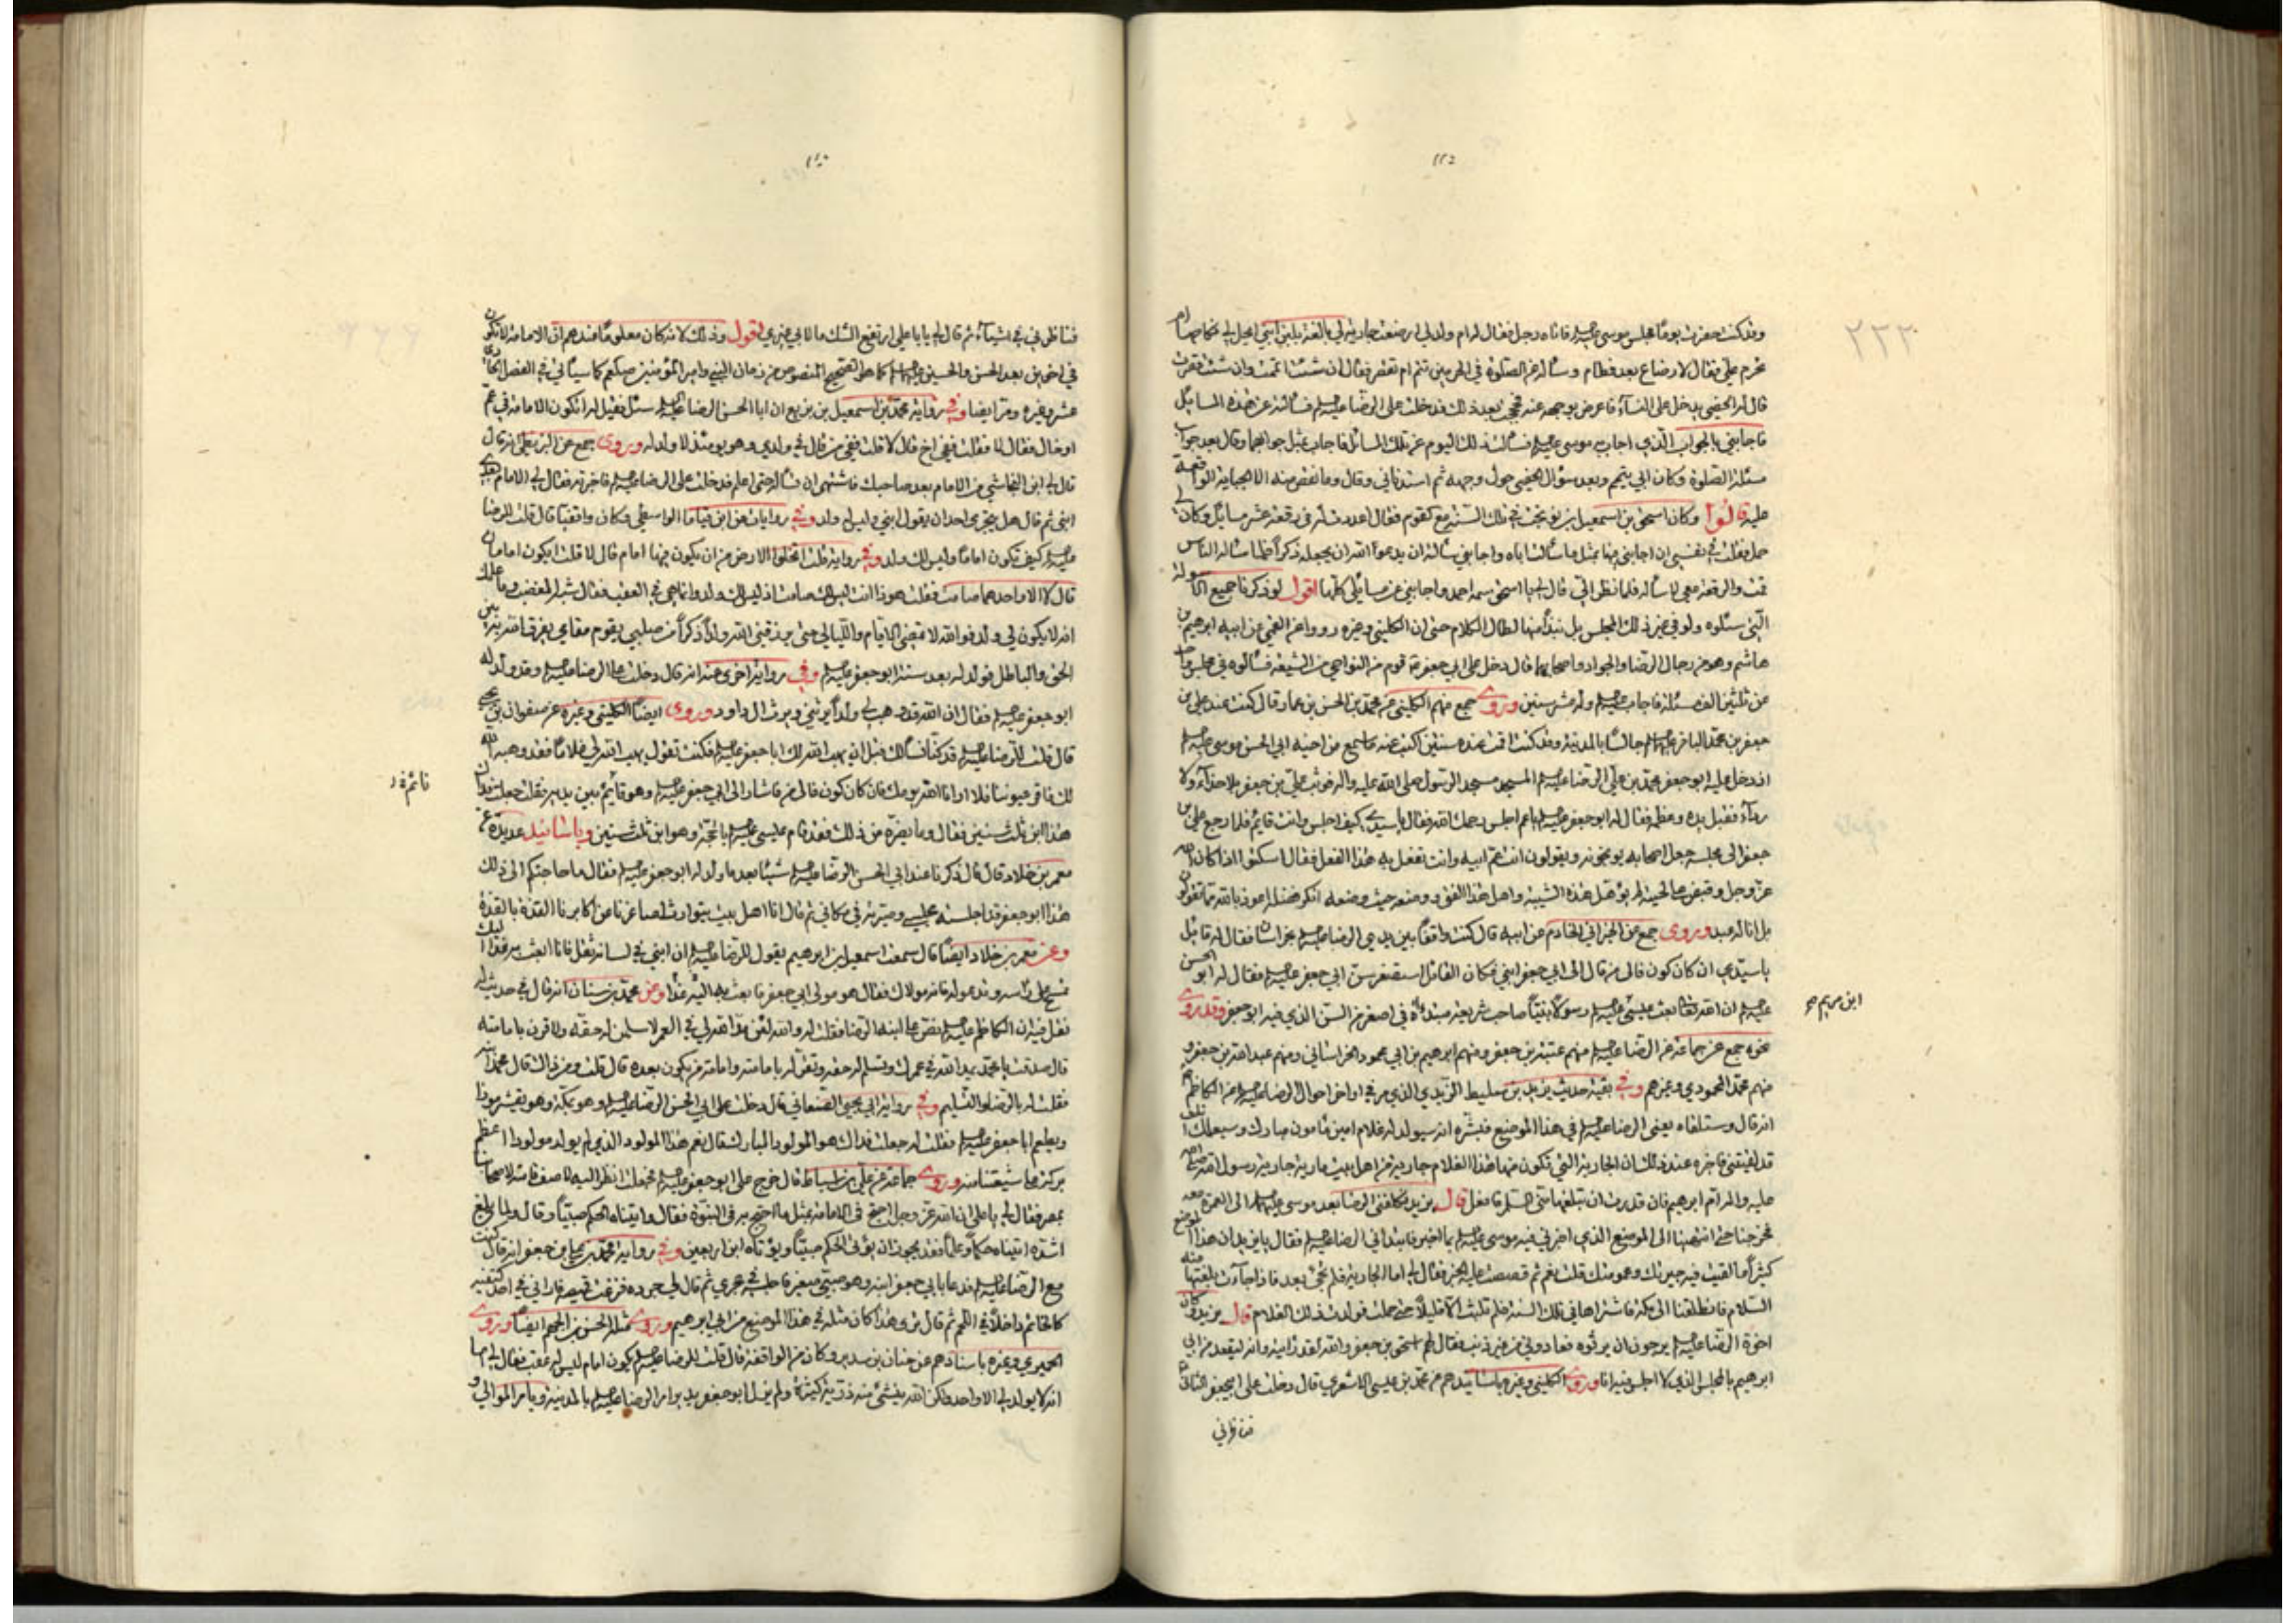 ٢٢٢
وقد كنت حضرت يومًا مجلس موسى عليه السلم فاتاه رجل فقال له ام ولد لي ارضعت جارية لي بالغة بلبن ابني ايحل لي نكاحها ام
تحرم علي فقال لا رضاع بعد فطام وسأله عن الصلوة في الحرمين تتم ام تقصر فقال ان شئت اتممت وان شئت قصرت
قال له الخصي يدخل على النسآء فاعرض بوجهه عنه فحججت بعد ذلك فدخلت على الرضا عليه السلم فسألته عن هذه المسايل
فاجابني بالجواب الذي اجاب به موسى عليه السلم فسألت ذلك اليوم عن تلك المسائل فاجاب بمثل جوابهما وقال بعد جواب
مسئلة الصلوة وكان ابي يتم وبعد سؤال الخصي حول وجهه ثم استدناني وقال وما نقص منه الا الجباية الواقعة
عليه قالوا وكان اسحق بن اسمعيل بن نوبخت في تلك السنة مع القوم فقال اعددت له في رقعة عشر مسايل وكان لي
حمل فقلت في نفسي ان اجابني فيها بمثل ما سألت اباه واجابني سألته ان يدعو الله ان يجعله ذكرا فلما سأله الناس
قمت والرقعة معي لاسأله فلما نظر الي قال لي يا اسحق سمه احمد واجابني عن مسايلي كلها اقول لو ذكرنا جميع الاسولة
التي سئلوه ولو في غير ذلك المجلس بل نبذًا منها لطال الكلام حتى ان الكليني وغيره رووا عن القمي عن ابيه ابرهيم بن
هاشم وهو من رجال الرضا والجواد واصحابهما قال دخل على ابي جعفر قوم من النواحي من الشيعة فسألوه في مجلس واحد
عن ثلثين الف مسئلة فاجاب عليه السلم وله عشر سنين وروى جمع منهم الكليني عن محمد بن الحسن بن عمار قال كنت عند علي بن
جعفر بن محمد الباقر عليهم السلم جالسًا بالمدينة وقد كنت اقمت عنده سنتين اكتب عنه ما سمع من اخيه ابي الحسن موسى عليه السلم
اذ دخل عليه ابو جعفر محمد بن علي الرضا عليه السلم المسجد مسجد الرسول صلى الله عليه واله فوثب علي بن جعفر بلا حذآء ولا
ردآء فقبل يده وعظمه فقال له ابو جعفر عليه السلم يا عم اجلس رحمك الله فقال يا سيدي كيف اجلس وانت قايم فلما رجع علي بن
جعفر الى مجلسه جعل اصحابه يوبخونه ويقولون انت عم ابيه وانت تفعل به هذا الفعل فقال اسكتوا اذا كان الله
عز وجل وقبض على لحيته لم يؤهل هذه الشيبة واهل هذا الفتى ووضعه حيث وضعه انكر فضله اعوذ بالله مما تقولون
بل انا له عبد وروى جمع عن الخيراني الخادم عن ابيه قال كنت واقفًا بين يدي الرضا عليه السلم بخراسان فقال له قايل
يا سيدي ان كان كون فالى من قال الى ابي جعفر ابني فكان القائل استصغر سن ابي جعفر عليه السلم فقال له ابو الحسن
عليه السلم ان الله تعالى بعث عيسى عليه السلم رسولًا نبيًا صاحب شريعة مبتداة في اصغر من السن الذي فيه ابو جعفر وقد روى
ابن مريم
نحوه جمع عن جماعة عن الرضا عليه السلم منهم عتبة بن جعفر ومنهم ابرهيم بن ابي محمود الخراساني ومنهم عبد الله بن جعفر و
منهم محمد المحمودي وغيرهم وفي بقية حديث يزيد بن سليط الزيدي الذي مر في اواخر احوال الرضا عليه السلم عن الكاظم
انه قال وستلقاه يعني الرضا عليه السلم في هذا الموضع فبشره انه سيولد له غلام امين مأمون مبارك وسيعلمك انك
قد لقيتني فاخبره عند ذلك ان الجارية التي تكون منها هذا الغلام جارية من اهل بيت مارية جارية رسول الله صلى الله
عليه واله ام ابرهيم فان قدرت ان تبلغها مني السلم فافعل قال يزيد فكافني الرضا بعد موسى عليهما السلم الى العمرة معه
فخرجنا حتى انتهينا الى الموضع الذي اخبرني فيه موسى عليه السلم بما اخبر فابتدأني الرضا عليه السلم فقال يا يزيد ان هذا الموضع
كثيرًا ما لقيت فيه جيرتك وعمومتك قلت نعم ثم قصصت عليه الخبر فقال لي اما الجارية فلم تجئ بعد فاذا جآءت بلغتها منه
السلام فانطلقنا الى مكة فاشتراها في تلك السنة فلم تلبث الا قليلًا حتى حملت فولدت ذلك الغلام قال يزيد وكان
اخوة الرضا عليه السلم يرجون ان يرثوه فعادوني من غير ذنب فقال لهم اسحق بن جعفر والله لقد رأيته وانه ليقعد من ابي
ابرهيم بالمجلس الذي لا اجلس فيه انا وروى الكليني وغيره باسانيدهم عن محمد بن عيسى الاشعري قال دخلت على ابي جعفر الثاني
فناظرني
فناظرني في اشيآء ثم قال لي يا با علي ارتفع الشك ما لابي غيري اقول وذلك لانه كان معلومًا عندهم ان الامامة لا تكون
في اخوين بعد الحسن والحسين عليهما السلم كما هو الصحيح المنصوص من زمان النبي وامير المؤمنين صلى عليهم كما سيأتي في الفصل الحادي
عشر وغيره ومر ايضا وفي رواية محمد بن اسمعيل بن بزيع ان ابا الحسن الرضا عليه السلم سئل فقيل له اتكون الامامة في عم
او خال فقال لا فقلت ففي اخ قال لا قلت ففي من قال في ولدي وهو يومئذ لا ولد له وروى جمع عن البزنطي انه قال
قال لي ابن النجاشي من الامام بعد صاحبك فاشتهي ان تسأله حتى اعلم فدخلت على الرضا عليه السلم فاخبرته فقال لي الامام بعدي
ابني ثم قال هل يجترئ احد ان يقول ابني وليس له ولد وفي روايات عن ابن قياما الواسطي وكان واقفيًا قال قلت للرضا
عليه السلم كيف تكون امامًا وليس لك ولد وفي رواية قلت اتخلو الارض من ان يكون فيها امام قال لا قلت ايكون امامان
قال لا الا واحدهما صامت فقلت هوذا انت ليس لك صامت اذ ليس لك ولد وانما هي في العقب فقال شبه المغضب وما علمك
انه لا يكون لي ولد فوالله لا تمضي الايام والليالي حتى يرزقني الله ولدًا ذكرًا من صلبي يقوم مقامي يفرق الله به بين
الحق والباطل فولد له بعد سنة ابو جعفر عليه السلم وفي رواية اخرى عنه انه قال دخلت على الرضا عليه السلم وقد ولد له
ابو جعفر عليه السلم فقال ان الله قد وهب لي ولدًا يرثني ويرث ال داود وروى ايضًا الكليني وغيره عن صفوان بن يحيى
قال قلت للرضا عليه السلم قد كنا نسألك قبل ان يهب الله لك ابا جعفر عليه السلم فكنت تقول يهب الله لي غلامًا فقد وهبه الله
لك فاقر عيوننا فلا ارانا الله يومك فان كان كون فالى من فاشار الى ابي جعفر عليه السلم وهو قايم بين يديه فقلت جعلت فداك
هذا ابن ثلث سنين فقال وما يضره من ذلك فقد قام عيسى عليه السلم بالحجة وهو ابن ثلث سنين وباسانيد عديدة عن
معمر بن خلاد قال قال ذكرنا عند ابي الحسن الرضا عليه السلم شيئًا بعد ما ولد له ابو جعفر عليه السلم فقال ما حاجتكم الى ذلك
هذا ابو جعفر قد اجلسته مجلسي وصيرته في مكاني ثم قال انا اهل بيت يتوارث اصاغرنا عن اكابرنا القذة بالقذة
وعن معمر بن خلاد ايضًا قال سمعت اسمعيل بن ابرهيم يقول للرضا عليه السلم ان ابني في لسانه ثقل فانا ابعث به غدًا اليك
تمسح على رأسه وتدعو له فانه مولاك فقال هو مولى ابي جعفر فابعث به اليه غدًا وعن محمد بن سنان انه قال في حديث له
نقل فيه ان الكاظم عليه السلم نص على ابنه الرضا فقلت له والله لئن مد الله لي في العمر لاسلمن له حقه ولاقرن بامامته
قال صدقت يا محمد يمد الله في عمرك وتسلم له حقه وتقر له بامامته وامامة من يكون بعده قال قلت ومن ذاك قال محمد ابنه
فقلت له بالرضا والتسليم وفي رواية ابي يحيى الصنعاني قال دخلت على ابي الحسن الرضا عليه السلم وهو بمكة وهو يقشر موزًا
ويطعم ابا جعفر عليه السلم فقلت له جعلت فداك هو المولود المبارك قال نعم هذا المولود الذي لم يولد مولود اعظم
بركة على شيعتنا منه وروى جماعة عن علي بن اسباط قال خرج علي ابو جعفر عليه السلم فجعلت انظر اليه لاصف قامته لاصحابنا
بمصر فقال لي يا علي ان الله عز وجل احتج في الامامة بمثل ما احتج به في النبوة فقال واتيناه الحكم صبيًا وقال ولما بلغ
اشده اتيناه حكمًا وعلمًا فقد يجوز ان يؤتى الحكم صبيًا ويؤتاه ابن اربعين وفي رواية محمد بن علي بن جعفر انه قال كنت
مع الرضا عليه السلم فدعا بابي جعفر ابنه وهو صبي صغير فاجلسه في حجري ثم قال لي جرده فنزعت قميصه فاراني في احد كتفيه
كالخاتم داخلًا في اللحم ثم قال ترى هذا كان مثله في هذا الموضع من ابي ابرهيم وروى مثله الحسن بن الجهم ايضًا وروى
الحميري وغيره باسنادهم عن حنان بن سدير وكان من الواقفة قال قلت للرضا عليه السلم يكون امام ليس له عقب فقال لي اما
انه لا يولد لي الا واحد ولكن الله ينشئ منه ذرية كثيرة ولم يزل ابو جعفر يدبر امر الرضا عليه السلم بالمدينة ويأمر الموالي و